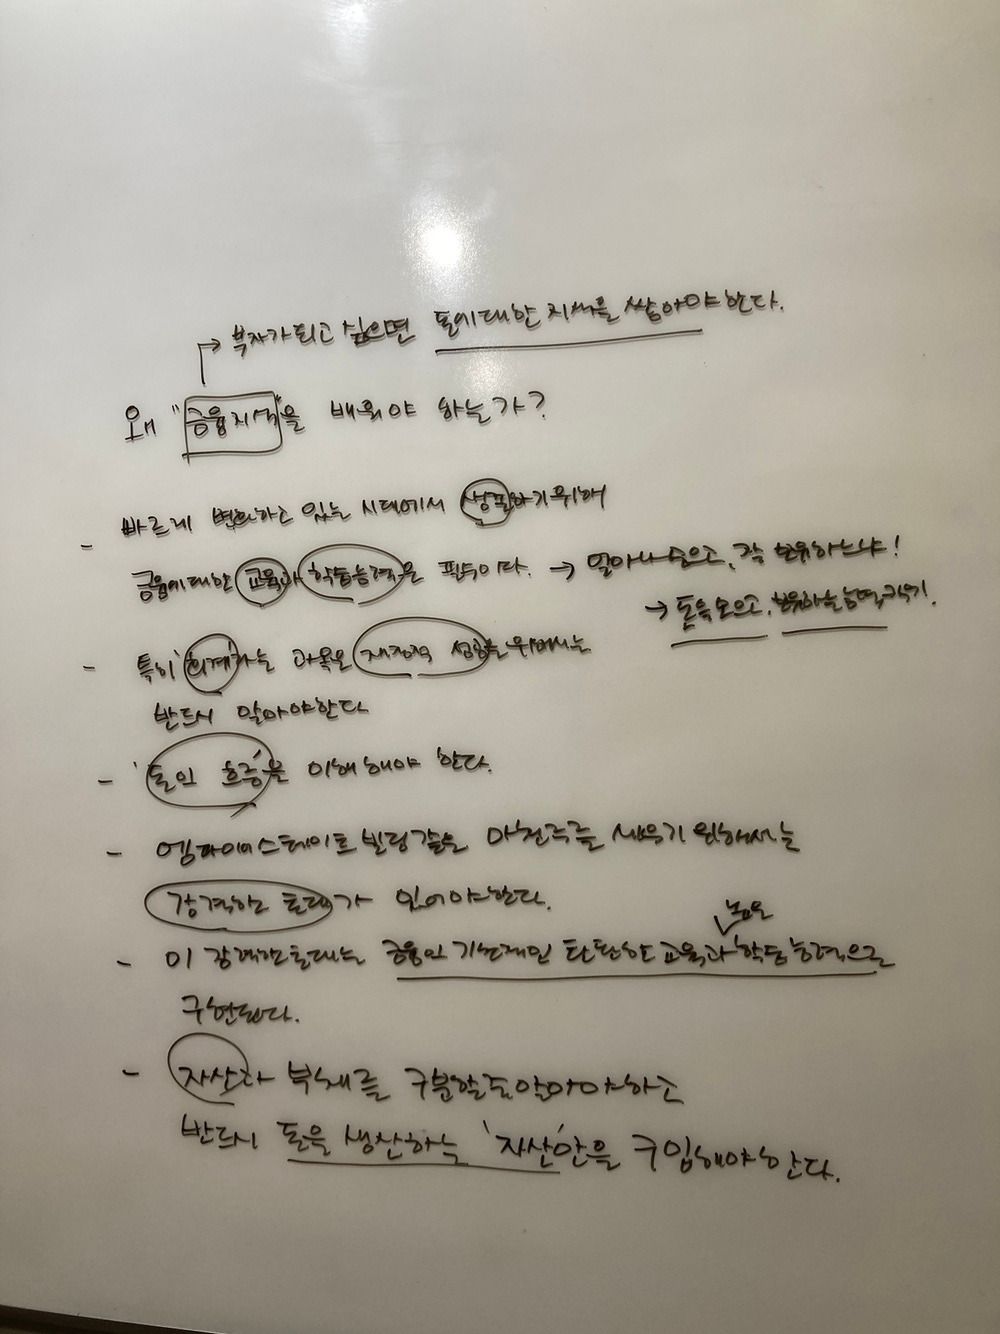 → 부자가 되고 싶으면 돈에 대한 지식을 쌓아야 한다.
왜 "금융지식"을 배워야 하는가?
- 빠르게 변화하고 있는 시대에서 생존하기 위해
금융에 대한 교육과 학습능력은 필수이다. → 얼마나 모으고, 잘 보유하느냐!
→ 돈을 모으고, 보유하는 능력 키우기.
- 특히 '회계'라는 과목은 재정적 성장을 위해서는
반드시 알아야한다
- '돈의 흐름'을 이해해야 한다.
- 엠파이어스테이트 빌딩같은 마천루를 세우기 위해서는
강력한 토대가 있어야한다.
높은
- 이 강력한 토대는 금융의 기초적인 탄탄한 교육과 학습능력으로
구현된다.
- 자산과 부채를 구분할 줄 알아야하고
반드시 돈을 생산하는 '자산'만을 구입해야한다.